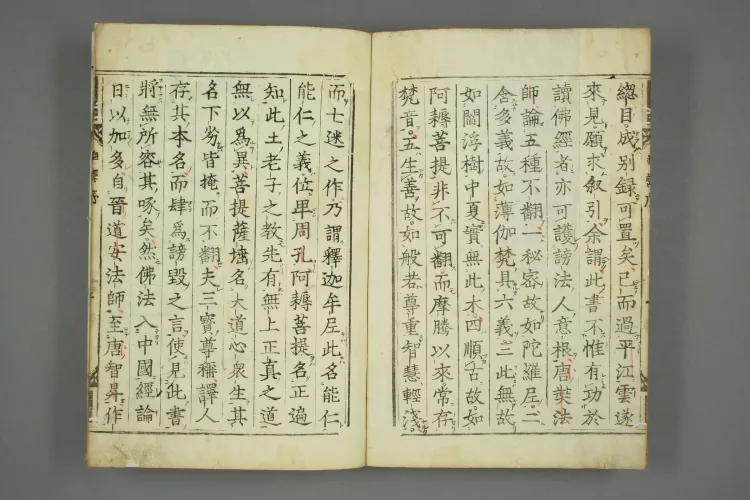 總目成別録可置矣已而過平江雲遂
來見願求叙引余謂此書不惟有功於
讀佛經者亦可護謗法人意根唐奘法
師論五種不翻一秘密故如陀羅尼二
含多義故如薄伽梵具六義三此無故
如閻浮樹中夏實無此木四順古故如
阿耨菩提非不可翻而摩騰以來常存
梵音五生善故如般若尊重智慧輕淺
而七迷之作乃謂釋迦牟尼此名能仁
能仁之義位卑周孔阿耨菩提名正遍
知此土老子之教先有無上正真之道
無以爲異菩提薩埵名大道心衆生其
名下劣皆掩而不翻夫三寳尊稱譯人
存其本名而肆爲謗毀之言使見此書
將無所容其啄矣然佛法入中國經論
日以加多自晉道安法師至唐智昇作